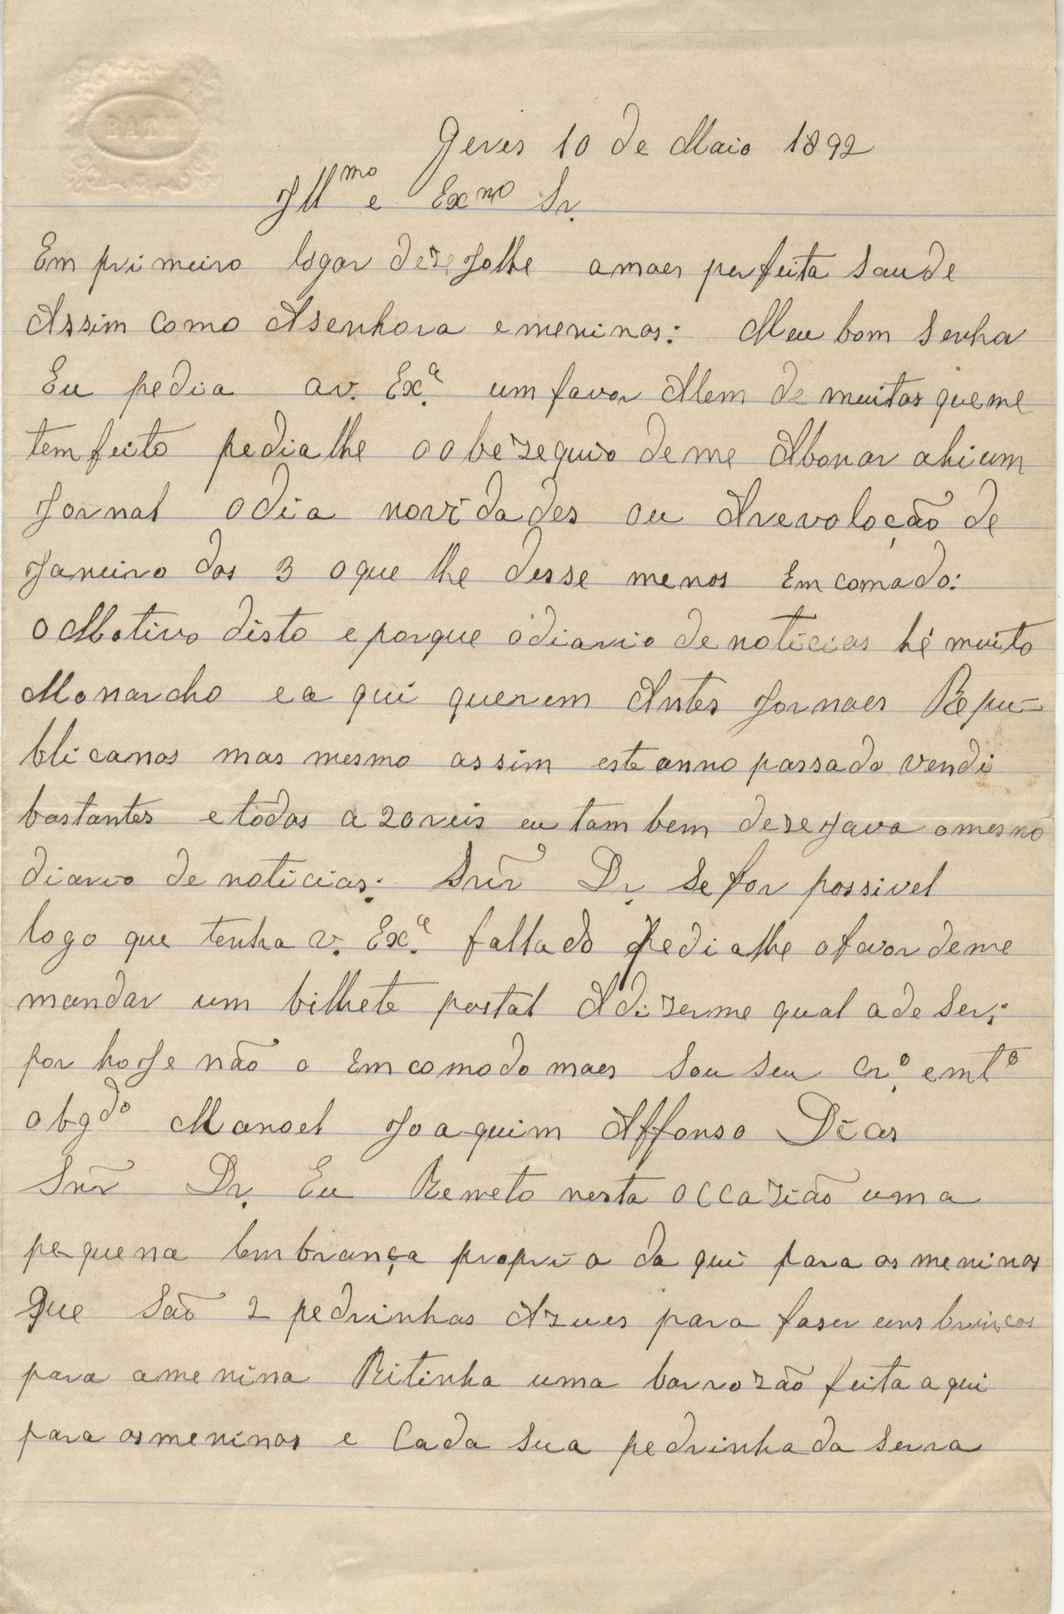 Geres 10 de Maio 1892
Illmo e Exmo Sr.
Em primeiro logar dezeJolhe amaes perfeita Saude
Assim como ASenhora emeninos: Meu bom Senhor
Eu pedia av. Exª. um favor Alem de muitos queme
tem feito pedialhe oobezequio deme Abonar ahium
Jornal odia novidades ou Arevoloção de
Janeiro dos 3 oque lhe desse menos Emcomodo:
OMotivo disto eporque odiario denoticias hé muito
Monarcho ea qui querem Antes Jornaes Repu-
blicanos mas mesmo assim este anno passado vendi
bastantes etodos a 20 reis eu tambem dezeJava omesmo
diario de noticias: Snr̃ Dr. Sefor possivel
logo que tenha v. Exª. fallado pedialhe ofavor deme
mandar um bilhete postal Adizerme qual ade Ser;
por hoJe não o Emcomodo maes Sou Seu Crº. emtº
obgdo Manoel Joaquim Affonso Dias
Snr̃ Dr. Eu Remeto nesta occazião uma
pequena lembrança propria da qui para os meninos
Que São 2 pedrinhas Azues para faser uns brincos
para amenina Ritinha uma borrozão feita aqui
para osmeninos e Cada Sua pedrinha da Serra